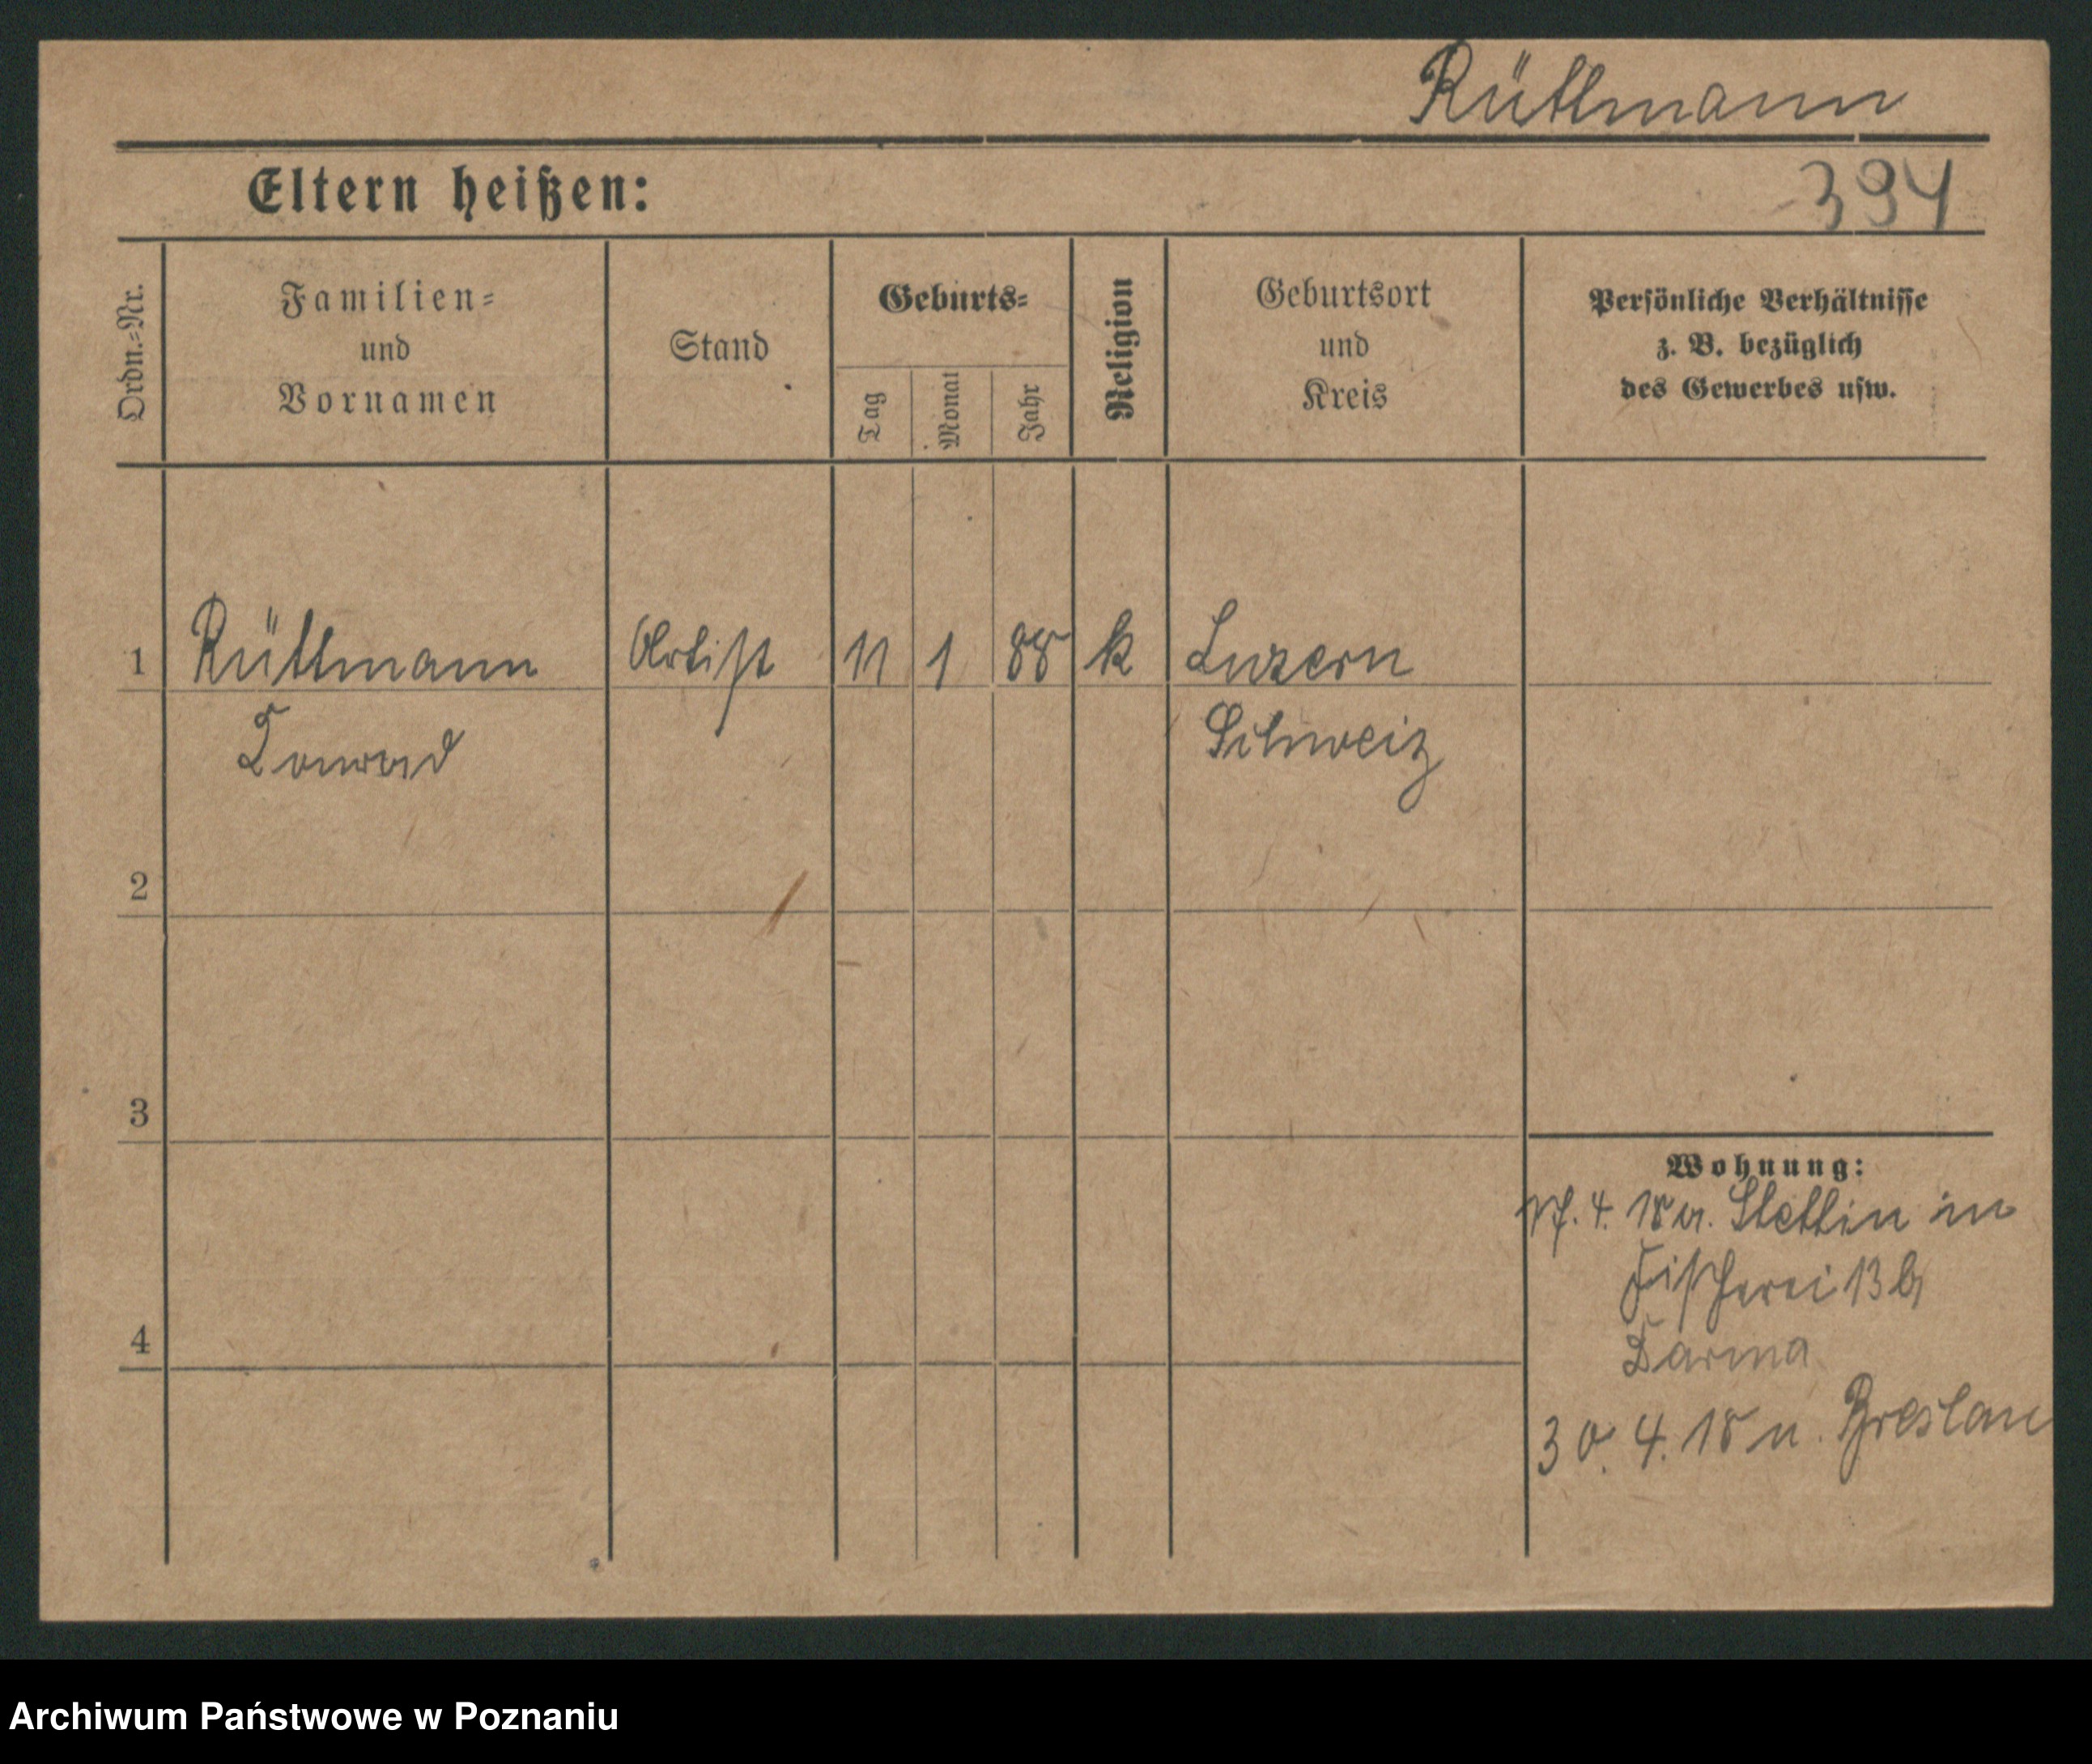 Rüttmann
Eltern heißen:
394
Ordn.=Nr.
Familien=
und
Vornamen
Stand
Geburts=
Tag
Monat
Jahr
Religion
Geburtsort
und
Kreis
Persönliche Verhältnisse
z. B. bezüglich
des Gewerbes usw.
1 Rüttmann Artist 11 1 88 k Luzern
Konrad Schweiz
2
3
Wohnung:
4. 18 Stettin in
Fischerei 13 b
4
Darma
30. 4. 18 n. Breslau
Archiwum Państwowe w Poznaniu